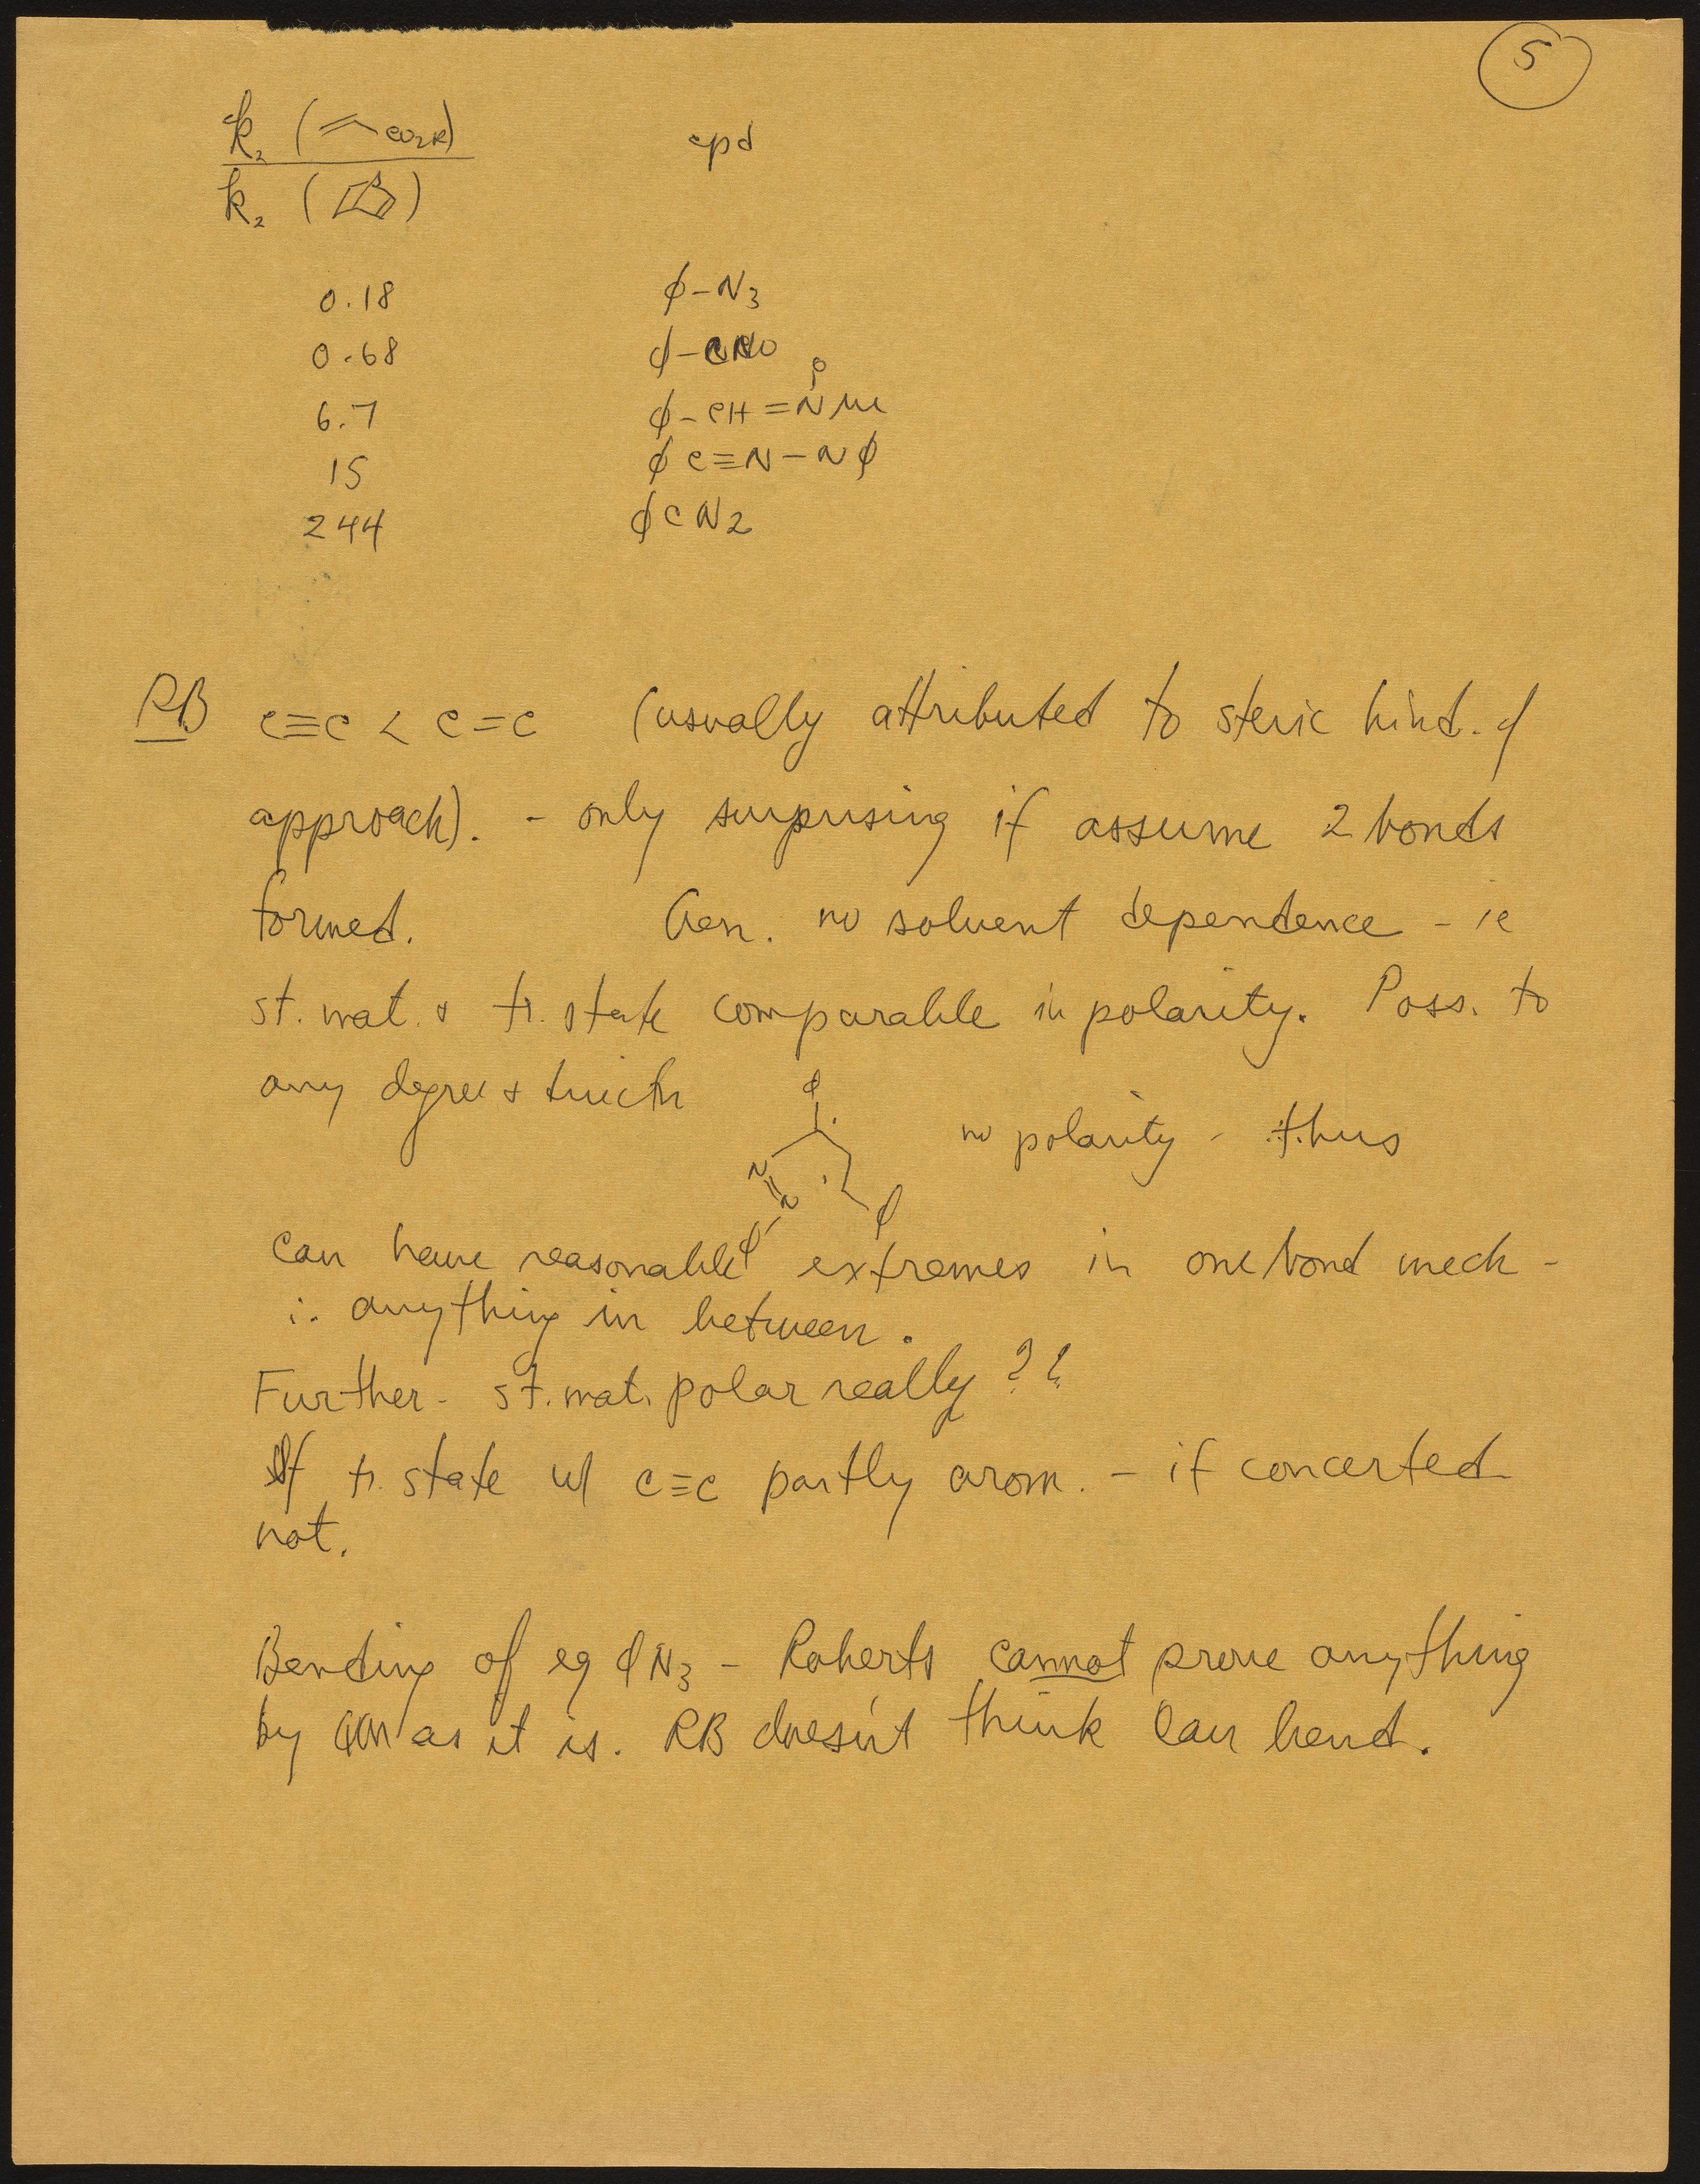 5
k₂ ( CO₂R) cpd
k₂ ( )
0.18 φ-N₃
0.68 φ-CNO
O
6.7 φ-CH=NMe
15 φC≡N-Nφ
244 φCN₂
RB C≡C < C=C (usually attributed to steric hind. of
approach). - only surprising if assume 2 bonds
formed. Gen. no solvent dependence - ie
st. mat. & tr. state comparable in polarity. Poss. to
any degree &
φ
no polarity - thus
N
N
φ
φ
can have reasonable extremes in one bond mech -
∴ anything in between.
Further - st. mat. polar really??
If tr. state w/ C≡C partly arom. - if concerted
not.
Bending of eg φN₃ - Roberts cannot prove anything
by as it is. RB doesn't think can bend.